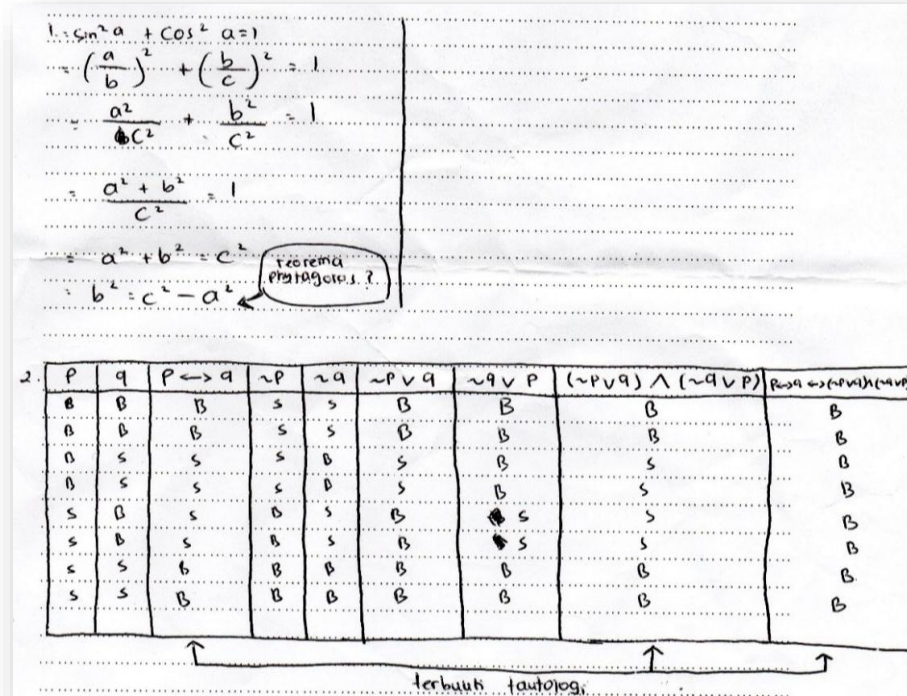 1. = sin² a + cos² a = 1
= (a/b)² + (b/c)² = 1
= a²/c² + b²/c² = 1
= (a² + b²)/c² = 1
= a² + b² = c²
= b² = c² - a²
teorema
phytagoras ?
2. p q p <-> q ~p ~q ~p ∨ q ~q ∨ p (~p ∨ q) ∧ (~q ∨ p) p<->q <-> (~p∨q)∧(~q∨p)
B B B S S B B B B
B B B S S B B B B
B S S S B S B S B
B S S S B S B S B
S B S B S B S S B
S B S B S B S S B
S S B B B B B B B
S S B B B B B B B
terbukti tautologi